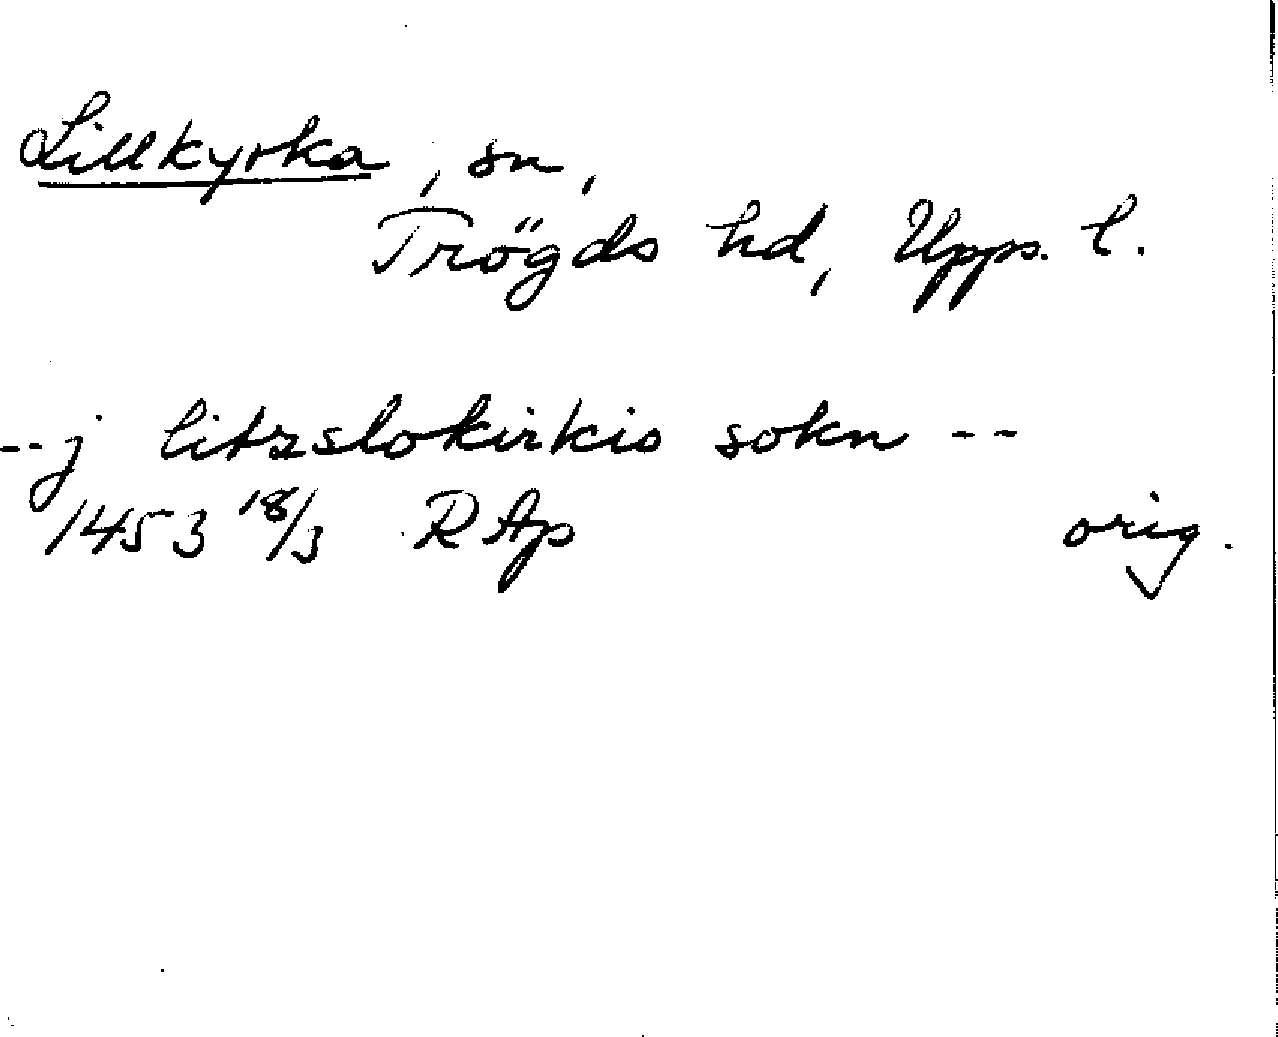 Lillkyrka, sn,
Trögds hd, Upps. l.
-- j litzslokirkis sokn --
1453 18/3 RAp orig.